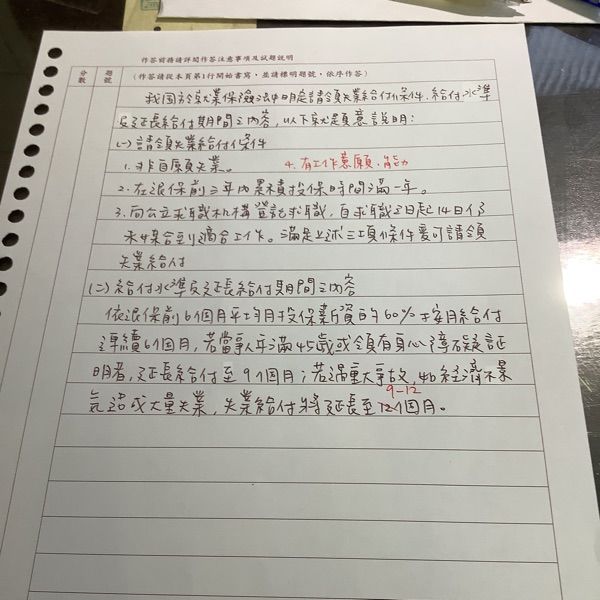 作答前務請詳閱作答注意事項及試題說明
分數
題號
(作答請從本頁第1行開始書寫,並請標明題號,依序作答)
我国於就業保險法中明定請領失業給付條件、給付水準
及延長給付期間之內容,以下就題意說明:
(一)請領失業給付條件
1.非自願失業。 4.有工作意願、能力
2.在退保前三年內累積投保時間滿一年。
3.向公立求職机構登記求職,自求職之日起14日仍
未媒合到適合工作。滿足上述三項條件要可請領
失業給付
(二)給付水準及延長給付期間之內容
依退保前6個月平均月投保薪資的60%按月給付
連續6個月,若當事人年滿45歲或領有身心障礙證
明者,延長給付至9個月;若遇重大事故,如經濟不景
9-12
氣造成大量失業,失業給付將延長至12個月。